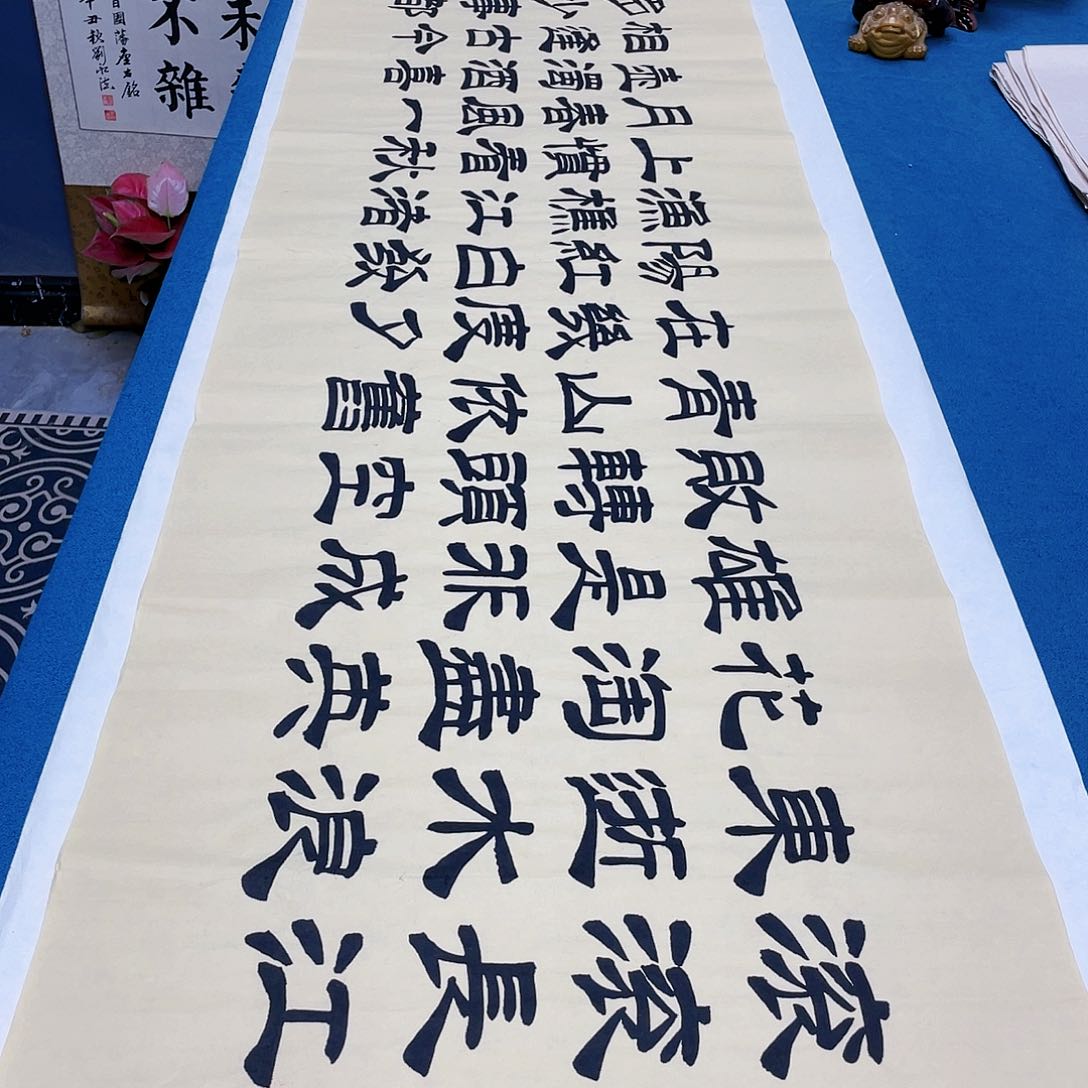 滾滾長江
東逝水浪
花淘盡英
雄是非成
敗轉頭空
青山依舊
在幾度夕
陽紅白發
漁樵江渚
上慣看秋
月春風一
壺濁酒喜
相逢古今
多少事都
未
不雜
國藩座右銘
丑秋劉